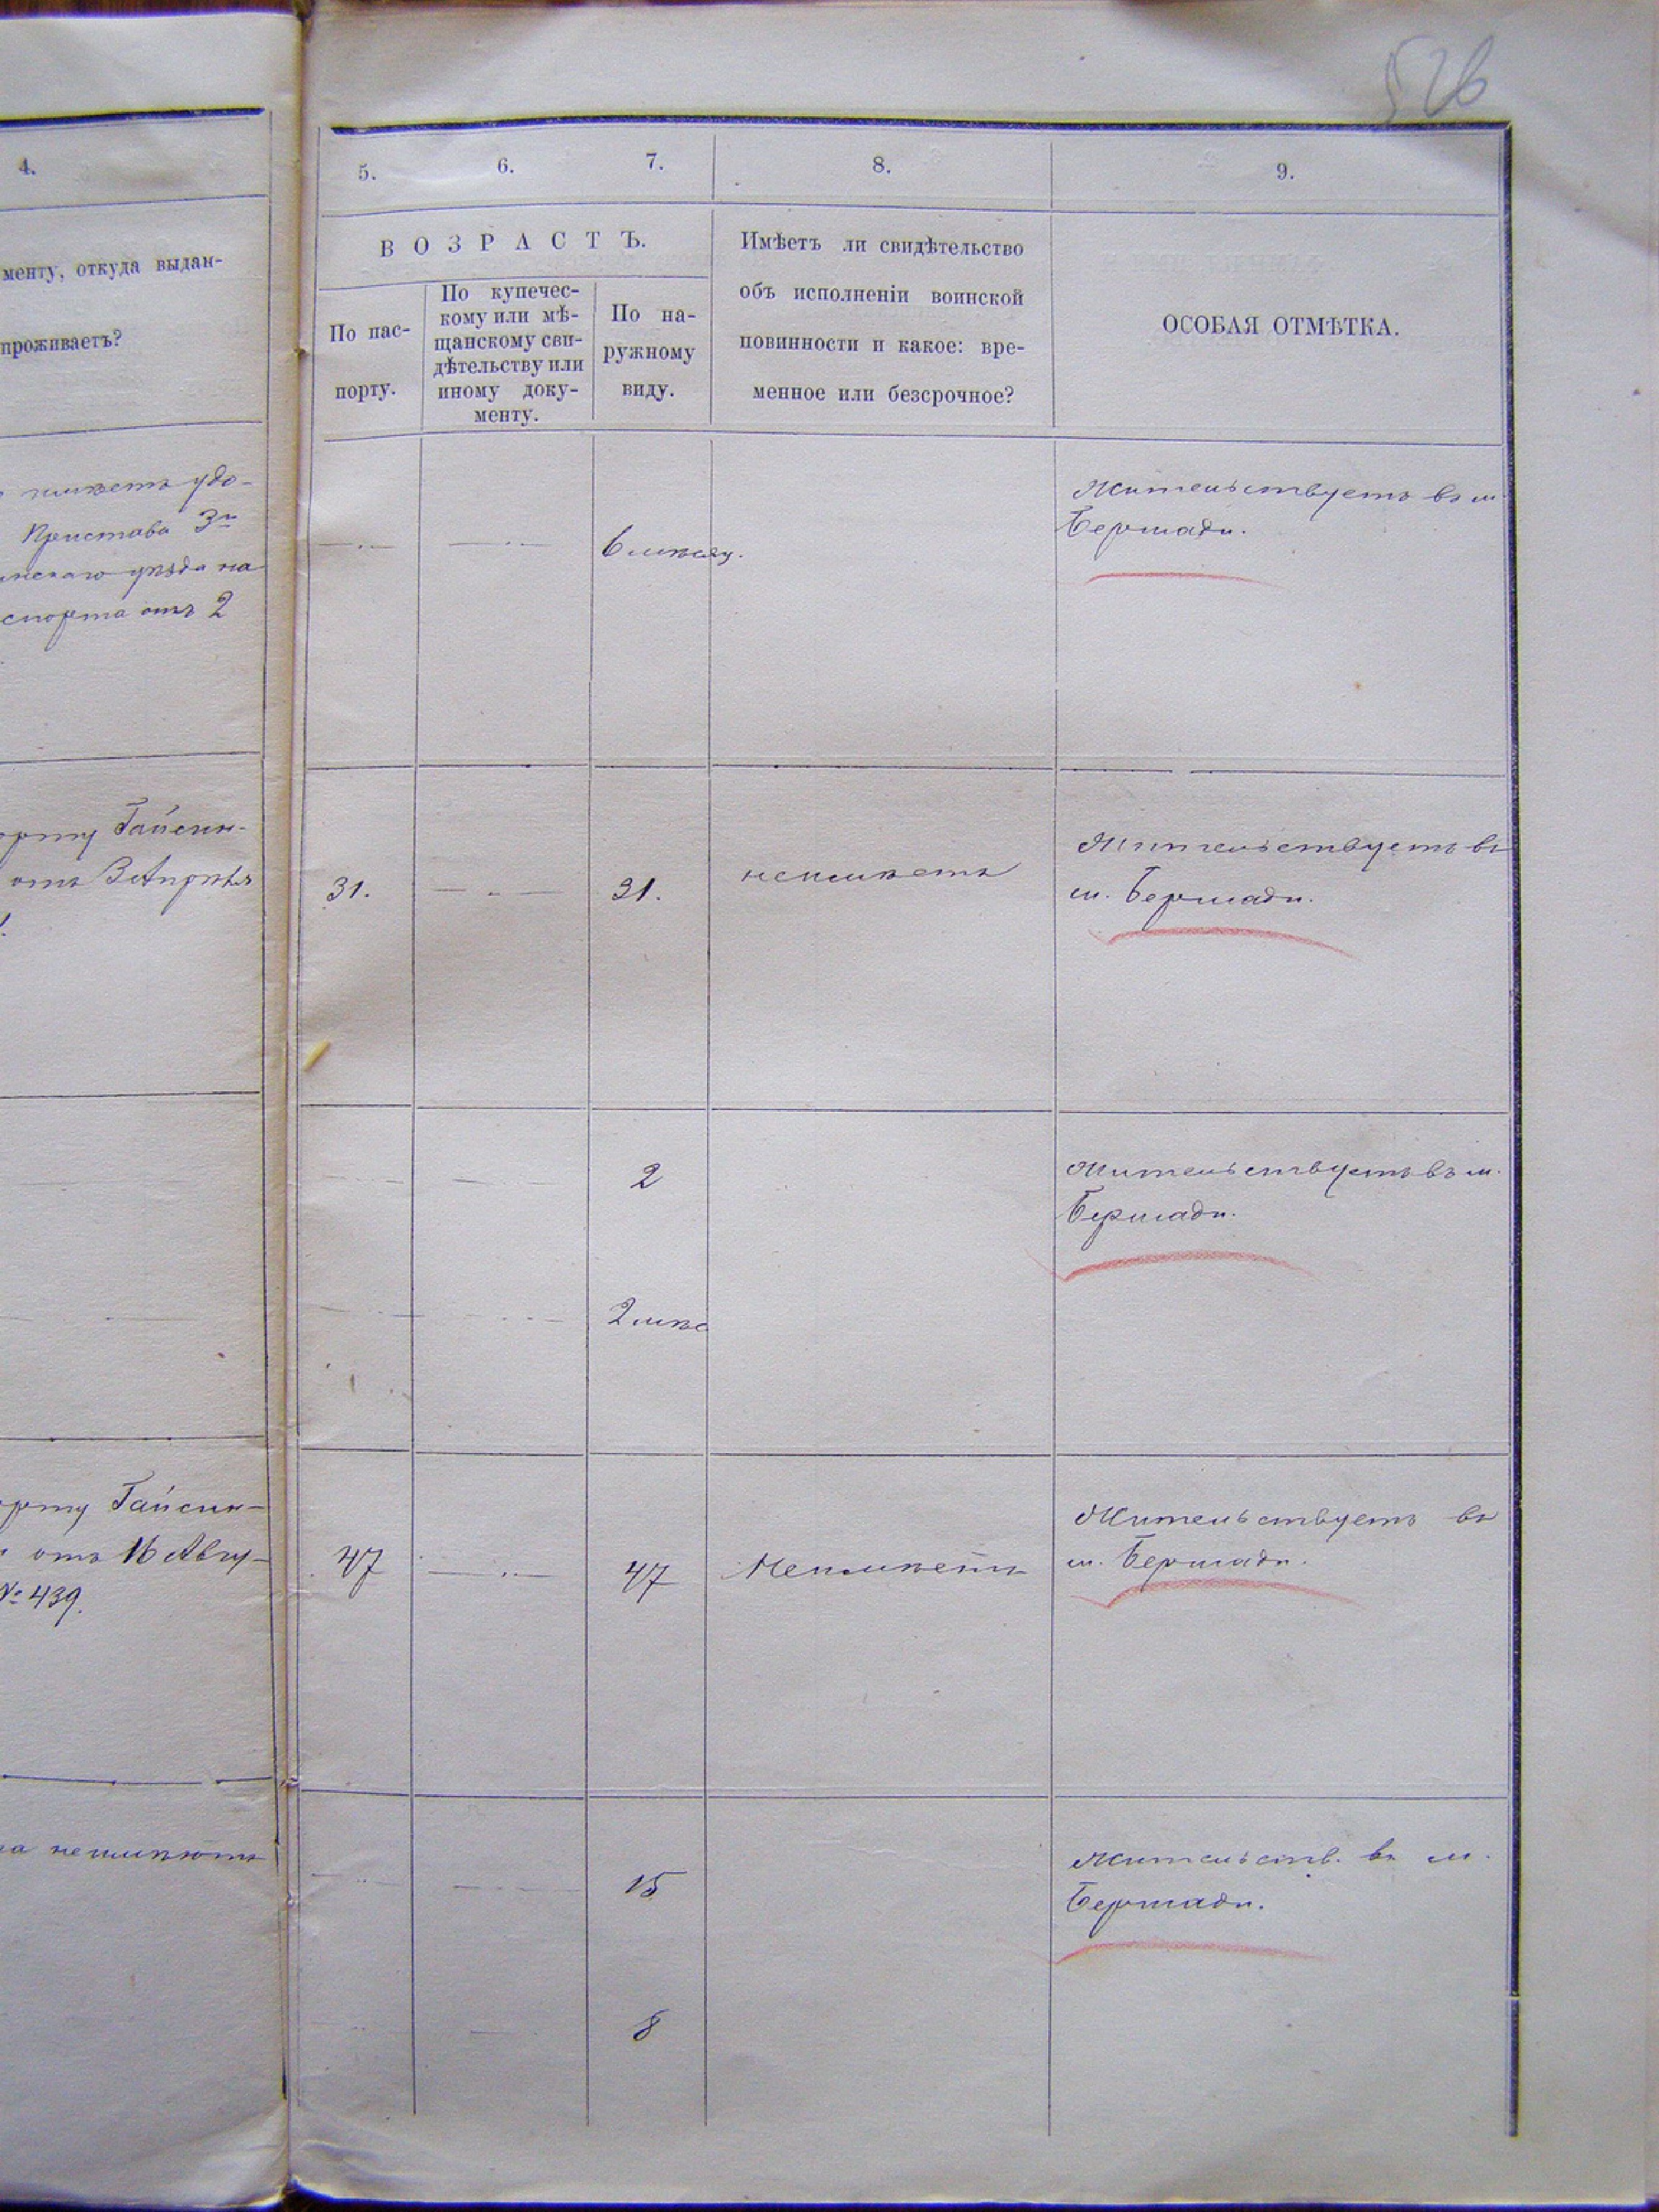 526
4.
5.
6.
7.
8.
9.
менту, откуда выдан-
проживаетъ?
ВОЗРАСТЪ.
По пас-
порту.
По купечес-
кому или мѣ-
щанскому сви-
дѣтельству или
иному доку-
менту.
По на-
ружному
виду.
Имѣетъ ли свидѣтельство
объ исполненіи воинской
повинности и какое: вре-
менное или безсрочное?
ОСОБАЯ ОТМѢТКА.
имѣетъ удо-
Пристава 3го
инскаго уѣзда на
спорта отъ 2
6 мѣсяц.
Жительствуетъ въ м.
Бершади.
орту Гайсин-
отъ 3 Апрѣля
31.
31.
неимѣетъ
Жительствуетъ въ
м. Бершади.
2
Жительствуетъ въ м.
Бершади.
2 мѣс
орту Гайсин-
отъ 16 Авгу-
№ 439.
47
47
Неимѣетъ
Жительствуетъ въ
м. Бершади.
на неимѣютъ
15
Жительств. въ м.
Бершади.
8